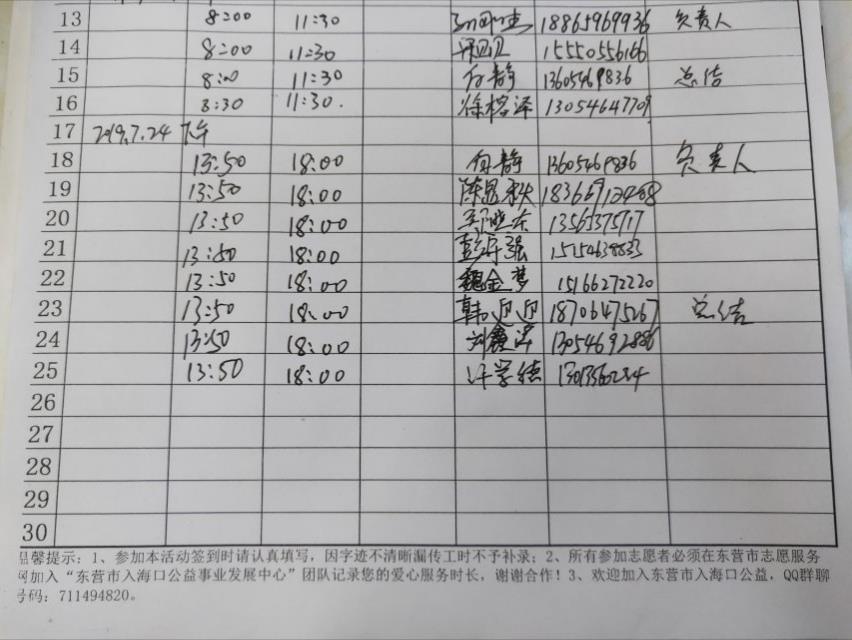 13 8:00 11:30 18865969936 负责人
14 8:00 11:30 15550556166
15 8:00 11:30 付静 13605469836 总结
16 8:30 11:30. 徐榕泽 13054647709
17 2019.7.24 下午
18 13:50 18:00 付静 13605469836 负责人
19 13:50 18:00
20 13:50 18:00 郑晓东 13563375717
21 13:50 18:00
22 13:50 18:00 魏金梦 15166272220
23 13:50 18:00 韩迎迎 18706475267 总结
24 13:50 18:00 刘鑫洋 13054692886
25 13:50 18:00 许学德
26
27
28
29
30
温馨提示：1、参加本活动签到时请认真填写，因字迹不清晰漏传工时不予补录；2、所有参加志愿者必须在东营市志愿服务
网加入“东营市入海口公益事业发展中心”团队记录您的爱心服务时长，谢谢合作！3、欢迎加入东营市入海口公益，QQ群聊
号码：711494820。